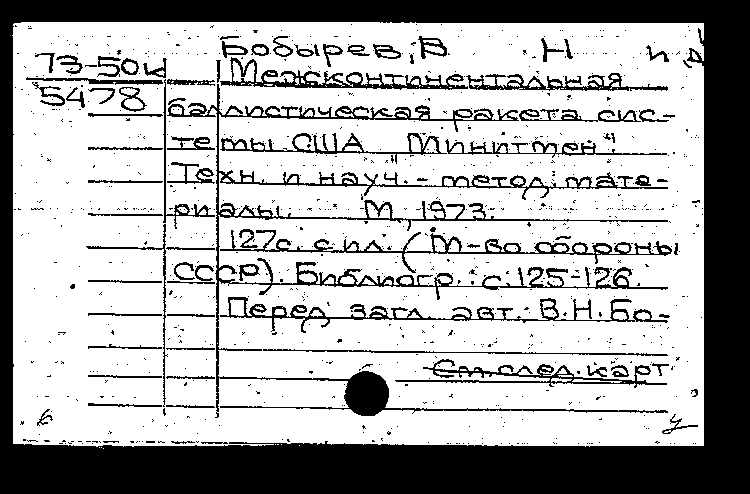 Бобырев, В Н и д
73-50к Межконтинентальная
5478 баллистическая ракета сис-
темы США Минитмен".
Техн. и науч.-метод. мате-
риалы. М., 1973.
127с. с ил. (М-во обороны
СССР). Библиогр.: с. 125-126.
Перед загл. авт.: В.Н. Бо-
См. след. карт
6